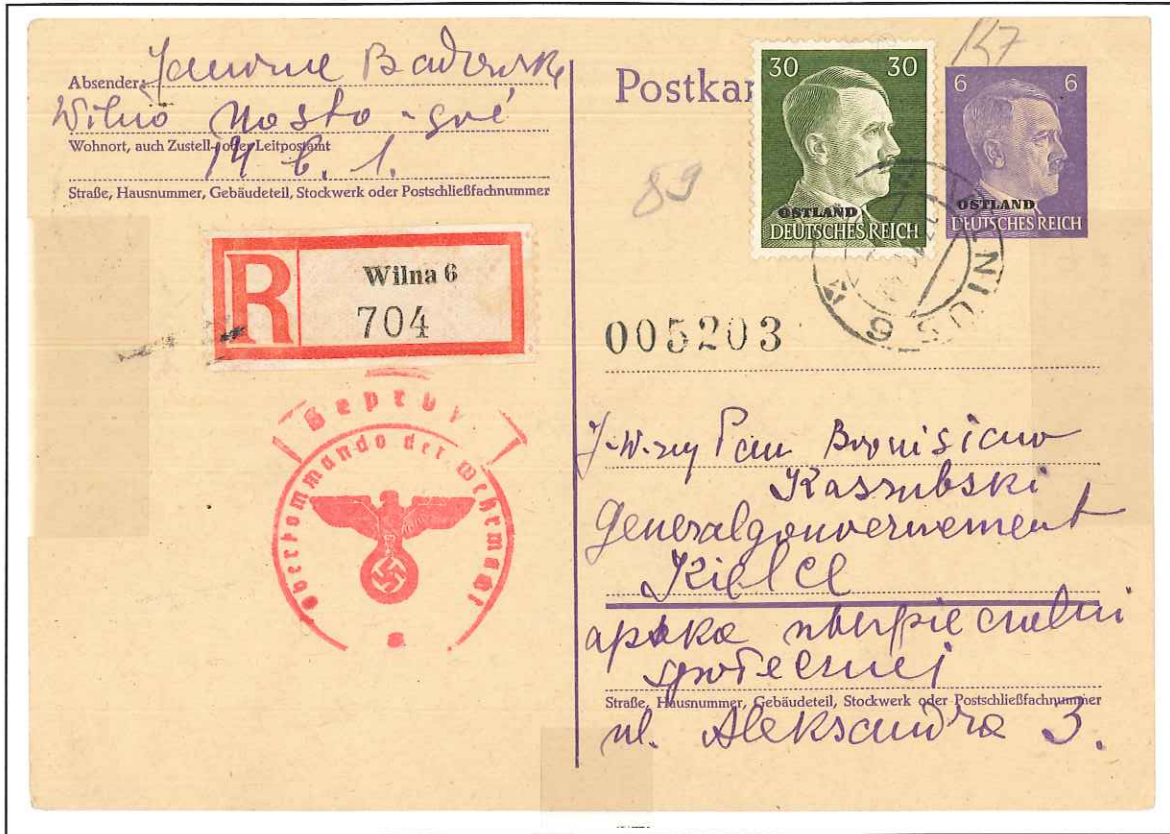 Absender: Janine
Wilno Mosto - gvé
Wohnort, auch Zustell- oder Leitpostamt
14 b. 1.
Straße, Hausnummer, Gebäudeteil, Stockwerk oder Postschließfachnummer
R
Wilna 6
704
Geprüf
Oberkommando der Wehrmacht
a
Postkar
30 30
OSTLAND
DEUTSCHES REICH
6 6
OSTLAND
DEUTSCHES REICH
147
89
VILNIUS 6
005203
J.W-ny Pan Bronisław
Kaszubski
Generalgouvernement
Kielce
apteka ubezpieczalni
społecznej
Straße, Hausnummer, Gebäudeteil, Stockwerk oder Postschließfachnummer
ul. Aleksandra 3.